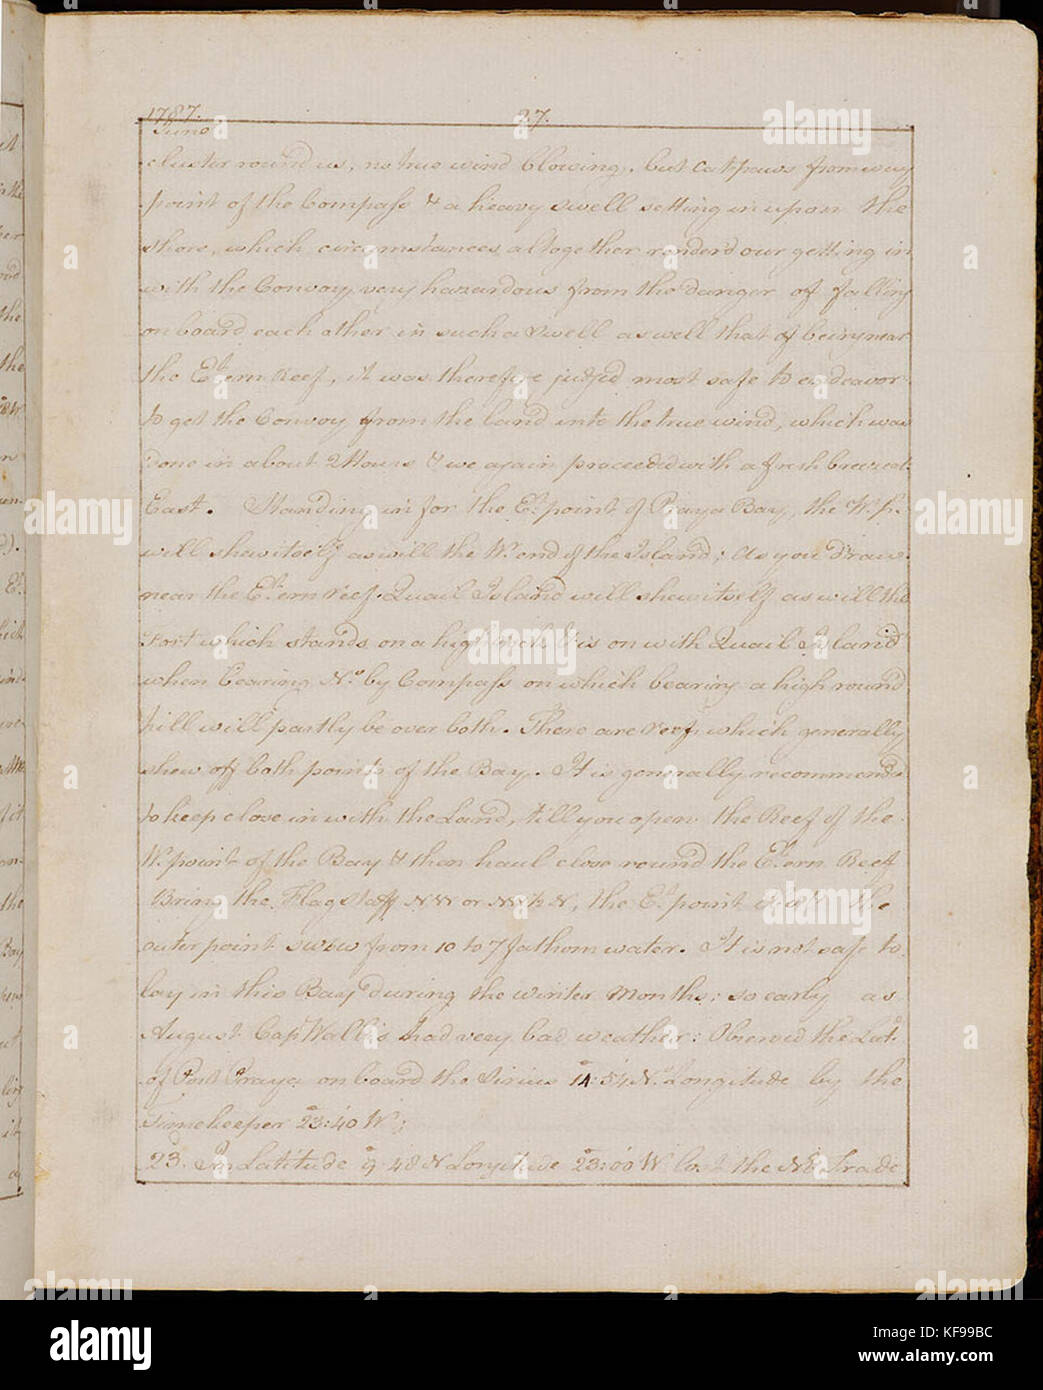 1787. 27.
June
cluster round us, no true wind blowing, but Catpaws from every
point of the Compass & a heavy swell setting in upon the
shore, which circumstances altogether render'd our getting in
with the Convoy very hazardous from the danger of falling
on board each other in such a swell as well that of being near
the Et.ern Reef, it was therefore judged most safe to endeavor
to get the Convoy from the land into the true wind, which was
done in about 2 Hours & we again proceeded with a fresh breeze at
East. Standing in for the Et. point of Praya Bay, the Wt. pt.
will shew itself as will the Wt. end of the Island; as you Draw
near the Et.ern reef. Quail Island will shew itself as will the
Fort which stands on a high rock & is on with Quail Island
when bearing No. by Compass on which bearing a high round
hill will partly be over both. There are reefs which generally
shew off both points of the Bay. It is generally recommended
to keep close in with the Land, till you open the Reef of the
Wt. point of the Bay & then haul close round the Et.ern Reef
Bring the Flag Staff NW or NW½N, the Et. point the
outer point SWbW from 10 to 7 fathom water. It is not safe to
lay in this Bay during the Winter Months: so early as
August Capt Wallis had very bad weather: Observed the Latd.
of Port Praya on board the Sirius 14°:54' N. Longitude by the
Timekeeper 23°:40' W;
23. In Latitude 9°:48 N Longitude 23°:00' W lost the NE Trade
alamy
KF99BC
www.alamy.com